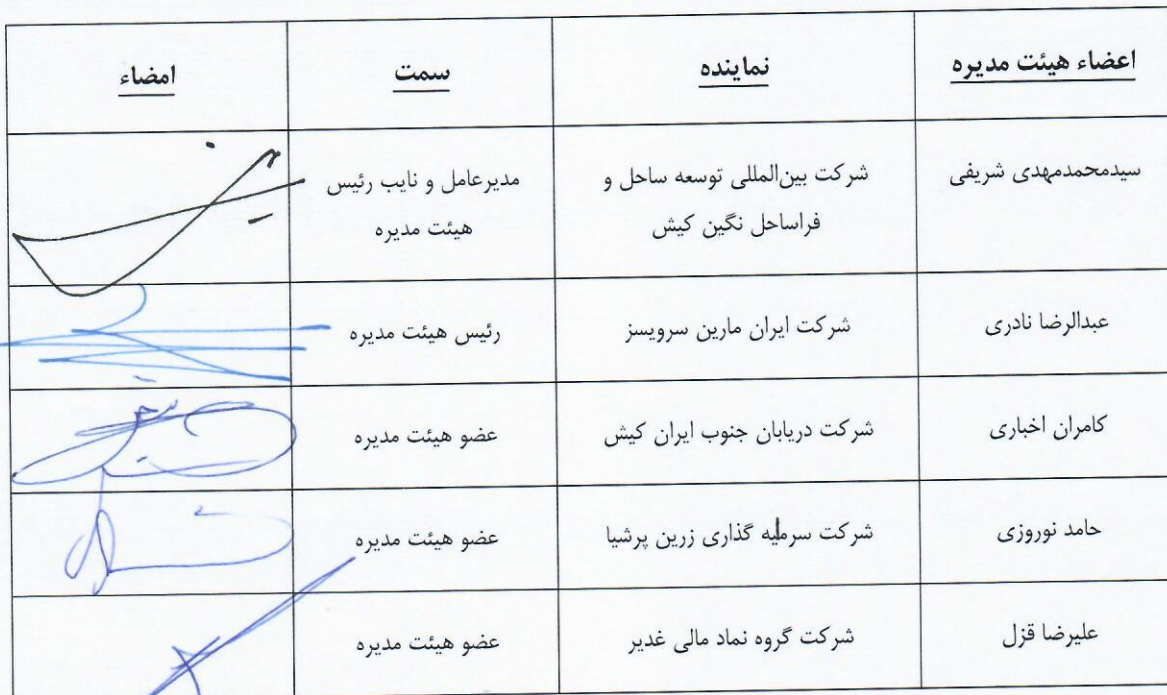 اعضاء هیئت مدیره نماینده سمت امضاء
سیدمحمدمهدی شریفی شرکت بین‌المللی توسعه ساحل و مدیرعامل و نایب رئیس
فراساحل نگین کیش هیئت مدیره
عبدالرضا نادری شرکت ایران مارین سرویسز رئیس هیئت مدیره
کامران اخباری شرکت دریابان جنوب ایران کیش عضو هیئت مدیره
حامد نوروزی شرکت سرمایه گذاری زرین پرشیا عضو هیئت مدیره
علیرضا قزل شرکت گروه نماد مالی غدیر عضو هیئت مدیره